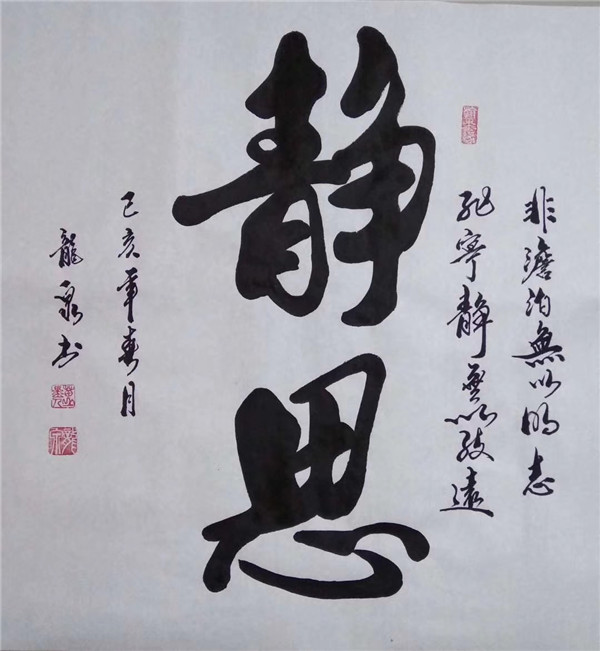 非澹泊無以明志
非寧静無以致遠
静思
己亥年春月
龍泉书